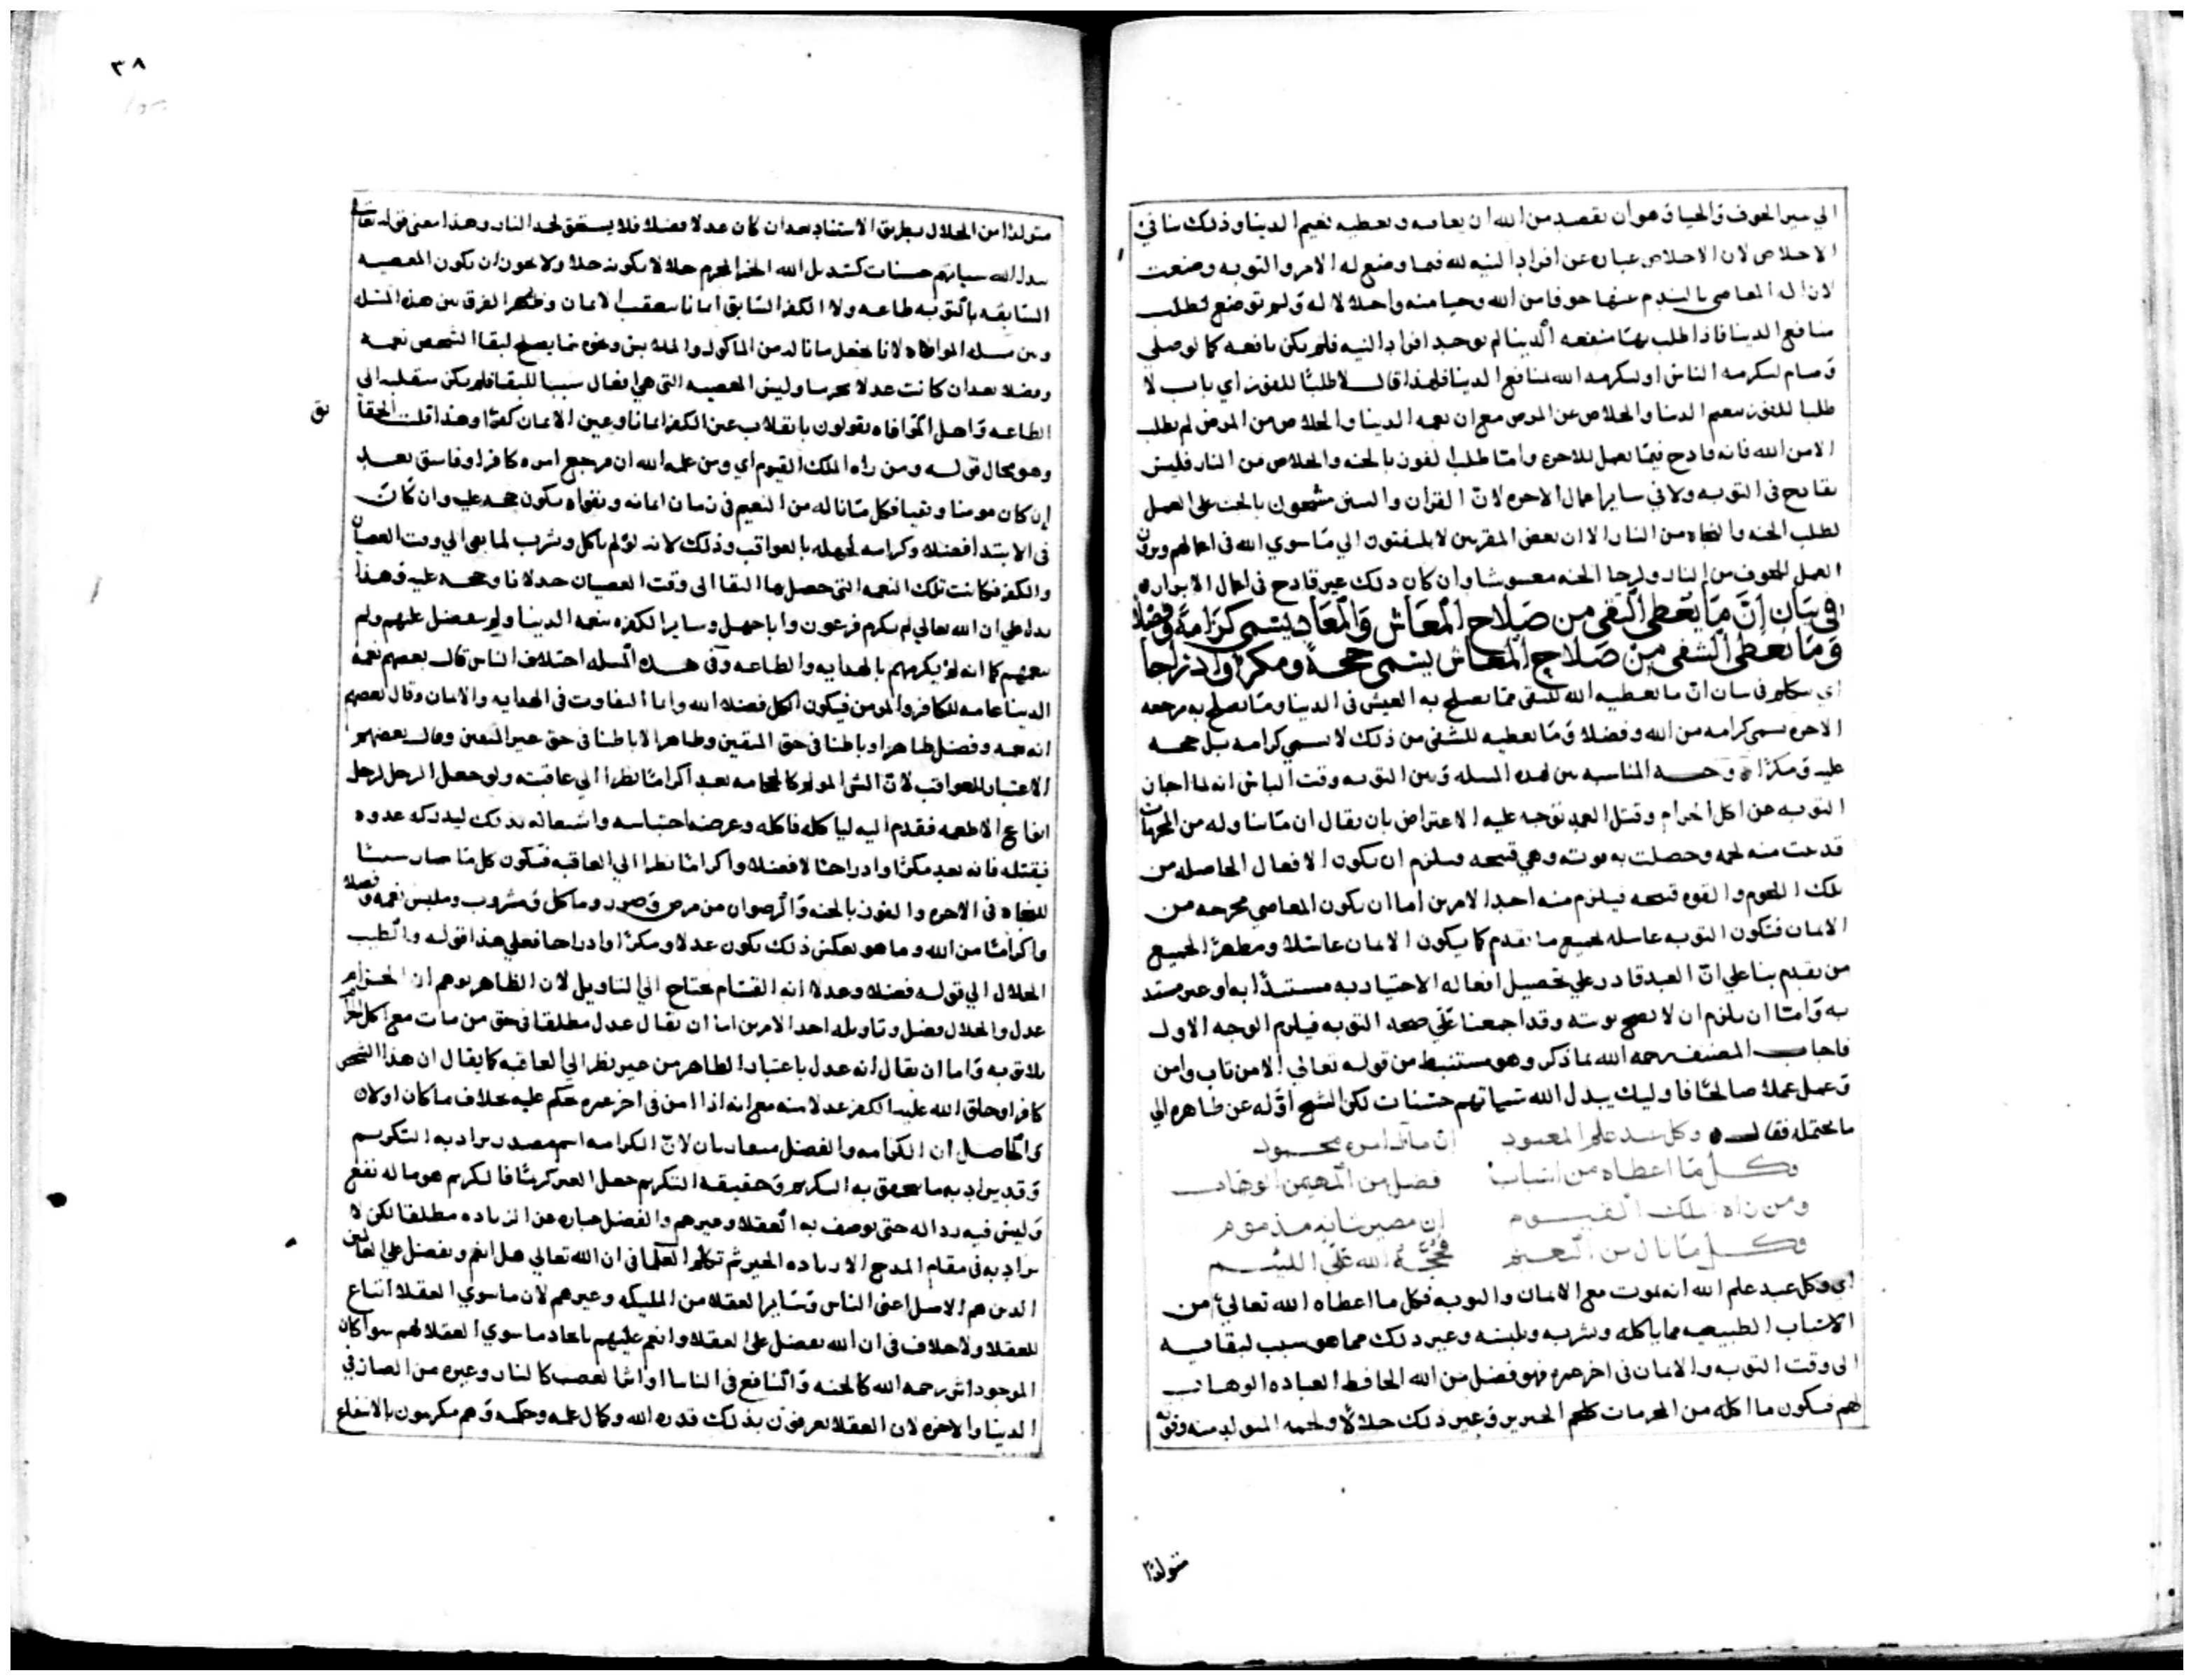 الي سير الخوف والحيا وهو ان يقصد من الله ان يعافيه ويعطيه نعيم الدنيا وذلك ينافي
الاخلاص لان الاخلاص عباره عن افراد النيه لله فيما وضع له الامر والتوبه وضعت
لازاله المعاصي بالندم عنها خوفا من الله وحيا منه واجلالا له ولم توضع لطلب
منافع الدنيا فاذا طلب بها منفعه الدنيا لم يوجد افراد النيه فلم يكن نافعه كما لو صلي
وصام ليكرمه الناس او ليكرمه الله بمنافع الدنيا فلهذا قال لا طلبا للفوز اي باب لا
طلبا للفوز بنعيم الدنيا والخلاص عن المرض مع ان نعمه الدنيا والخلاص من المرض لم يطلب
الا من الله فانه قادح فيما يعمل للاخره واما طلب الفوز بالجنه والخلاص من النار فليس
بقادح في التوبه ولا في ساير اعمال الاخره لان القران والسنن مشحون بالحث على العمل
لطلب الجنه والنجاه من النار الا ان بعض المقربين لا يلتفتون الي ما سوي الله في اعمالهم ويرون
العمل للخوف من النار ولرجا الجنه مغشوشا وان كان ذلك غير قادح في اعمال الابرار ه
في بيان ان ما يعطى التقي من صلاح المعاش والمعاد يسمى كرامة وفضلا
وما يعطى الشقي من صلاح المعاش يسمى حجة ومكرا واستدراجا
اي نتكلم في بيان ان ما يعطيه الله للتقي مما يصلح به العيش في الدنيا وما يصلح به مرجعه
الاخره يسمي كرامه من الله وفضلا وما يعطيه للشقي من ذلك لا يسمي كرامه بل حجه
عليه ومكرا ه وجه المناسبه بين هذه المسله وبين التوبه وقت الباس انه لما اجاز
التوبه عن اكل الحرام وقتل العمد توجه عليه الاعتراض بان يقال ان ما يتناوله من المحرمات
قد نبت منه لحمه وحصلت به قوته وهي قبيحه فيلزم ان يكون الافعال الحاصله من
تلك اللحوم والقوه قبيحه فيلزم منه احد الامرين اما ان يكون المعاصي مخرجه من
الايمان فتكون التوبه غاسله لجميع ما تقدم كما يكون الايمان غاسلا ومطهرا لجميع
من تقدم بنا علي ان العبد قادر علي تحصيل افعاله الاختياريه مستبدا به او غير مستبد
به واما ان يلزم ان لا يصح توبته وقد اجمعنا علي صحه التوبه فيلزم الوجه الاول
فاجاب المصنف رحمه الله بما ذكر وهو مستنبط من قوله تعالي الا من تاب وامن
وعمل عملا صالحا فاوليك يبدل الله سياتهم حسنات لكن الشيخ اوّله عن ظاهره الي
ما يحتمله فقال ه وكل عبد علم المعبود ان مآل امره محمود
وكل ما اعطاه من اسباب فضل من المهيمن الوهاب
ومن راه الملك القيوم ان مصير شانه مذموم
وكل ما نال من النعيم فحجة الله علي اللئيم
اي وكل عبد علم الله انه يموت مع الايمان والتوبه فكل ما اعطاه الله تعالي من
الاسباب الطبيعيه مما ياكله ويشربه ويلبسه وغير ذلك مما هو سبب لبقايه
الى وقت التوبه والايمان في اخر عمره فهو فضل من الله الحافظ لعباده الوهاب
لهم فيكون ما اكله من المحرمات كلحم الخنزير وغير ذلك حلالا ولحمه المتولد منه وقوته
متولدا
٣٨
متولدا من الحلال بطريق الاستناد بعد ان كان عدلا وفضلا فلا يستحق لحد النار وهذا معنى قوله تعا
يبدل الله سياتهم حسنات كتبديل الله الخمر المحرم خلا لا بكونه حلالا ولا يجوز ان يكون المعصيه
السابقه بالتوبه طاعه ولا الكفر السابق ايمانا بتعقب الايمان وظهر الفرق بين هذه المسله
وبين مسله الموافاه لانا نجعل ما ناله من الماكول والملابس وغيره مما يصلح لبقا الشخص نعمه
وفضلا بعد ان كانت عدلا محرما وليس المعصيه التي هي افعال سببا للبقا فلم يكن منقلبه الي
الطاعه واهل الموافاه يقولون بانقلاب عين الكفر ايمانا وعين الايمان كفرا وهذا قلب الحقا
يق
وهو محال قوله ومن راه الملك القيوم اي ومن علمه الله ان مرجع امره كافرا وفاسق بعد
ان كان مومنا وتقيا فكل ما ناله من النعيم في زمان ايمانه وتقواه يكون حجه عليه وان كان
في الابتدا فضلا وكرامه لجهله بالعواقب وذلك لانه لو لم ياكل ويشرب لما بقي الي وقت العصيان
والكفر فكانت تلك النعمه التي حصل بها البقا الى وقت العصيان خذلانا وحجه عليه وهذا
يدل علي ان الله تعالي لم يكرم فرعون وابا جهل وساير الكفره بنعمه الدنيا ولم يتفضل عليهم ولم
ينعمهم كما انه لم يكرمهم بالهدايه والطاعه وفي هذه المسله اختلاف الناس قال بعضهم نعمه
الدنيا عامه للكافر والمومن فيكون الكل فضلا لله وانما التفاوت في الهدايه والايمان وقال بعضهم
انه نعمه وفضل ظاهرا وباطنا في حق المتقين وظاهرا لا باطنا في حق غير المتقين وقال بعضهم
الاعتبار للعواقب لان الشي المولم كالحجامه يعد اكراما نظرا الي عاقبته ولو جعل الرجل لرجل
انواع الاطعمه فقدم اليه لياكله فاكله وغرضه احتباسه واشتغاله بذلك ليدركه عدوه
فيقتله فانه يعد مكرا وادراجا لا فضلا واكراما نظرا الي العاقبه فيكون كل ما صار سببا
للنجاه في الاخره والفوز بالجنه والرضوان من مرض وصور وماكل ومشروب وملبس نعمه وفضلا
واكراما من الله وما هو بعكس ذلك يكون عدلا ومكرا وادراجا فعلي هذا قوله والطيب
الحلال الي قوله فضلا وعدلا انه القسام يحتاج الي التاويل لان الظاهر يوهم ان الحرام
عدل والحلال فضل وتاويله احد الامرين اما ان يقال عدل مطلقا في حق من مات مع اكل الحرام
بلا توبه واما ان يقال انه عدل باعتبار الظاهر من غير نظر الي العاقبه كما يقال ان هذا الشخص
كافر وخلق الله عليه الكفر عدلا منه مع انه اذا امن في اخر عمره حكم عليه بخلاف ما كان اولا ن
والحاصل ان الكرامه والفضل متعاربان لان الكرامه اسم مصدر يراد به التكريم
وقد يراد به ما يتحقق به التكريم وحقيقه التكريم جعل الغير كريما فالكريم هو ما له نفع
وليس فيه رداله حتى يوصف به العقلا وغيرهم والفضل عباره عن الزياده مطلقا لكن لا
يراد به في مقام المدح الا زياده الخير ثم تكلم العلما في ان الله تعالي هل انعم وتفضل علي العالمين
الذين هم الاصل اعني الناس وساير العقلا من المليكه وغيرهم لان ما سوي العقلا اتباع
للعقلا ولا خلاف في ان الله تفضل علي العقلا وانعم عليهم بايجاد ما سوي العقلا لهم سوا كان
الموجود اثر رحمه الله كالجنه والنافع في الدنيا او اثر الغضب كالنار وغيره من الضار في
الدنيا والاخره لان العقلا يعرفون بذلك قدره الله وكمال علمه وحكمته وهم مكرمون بالانتفاع